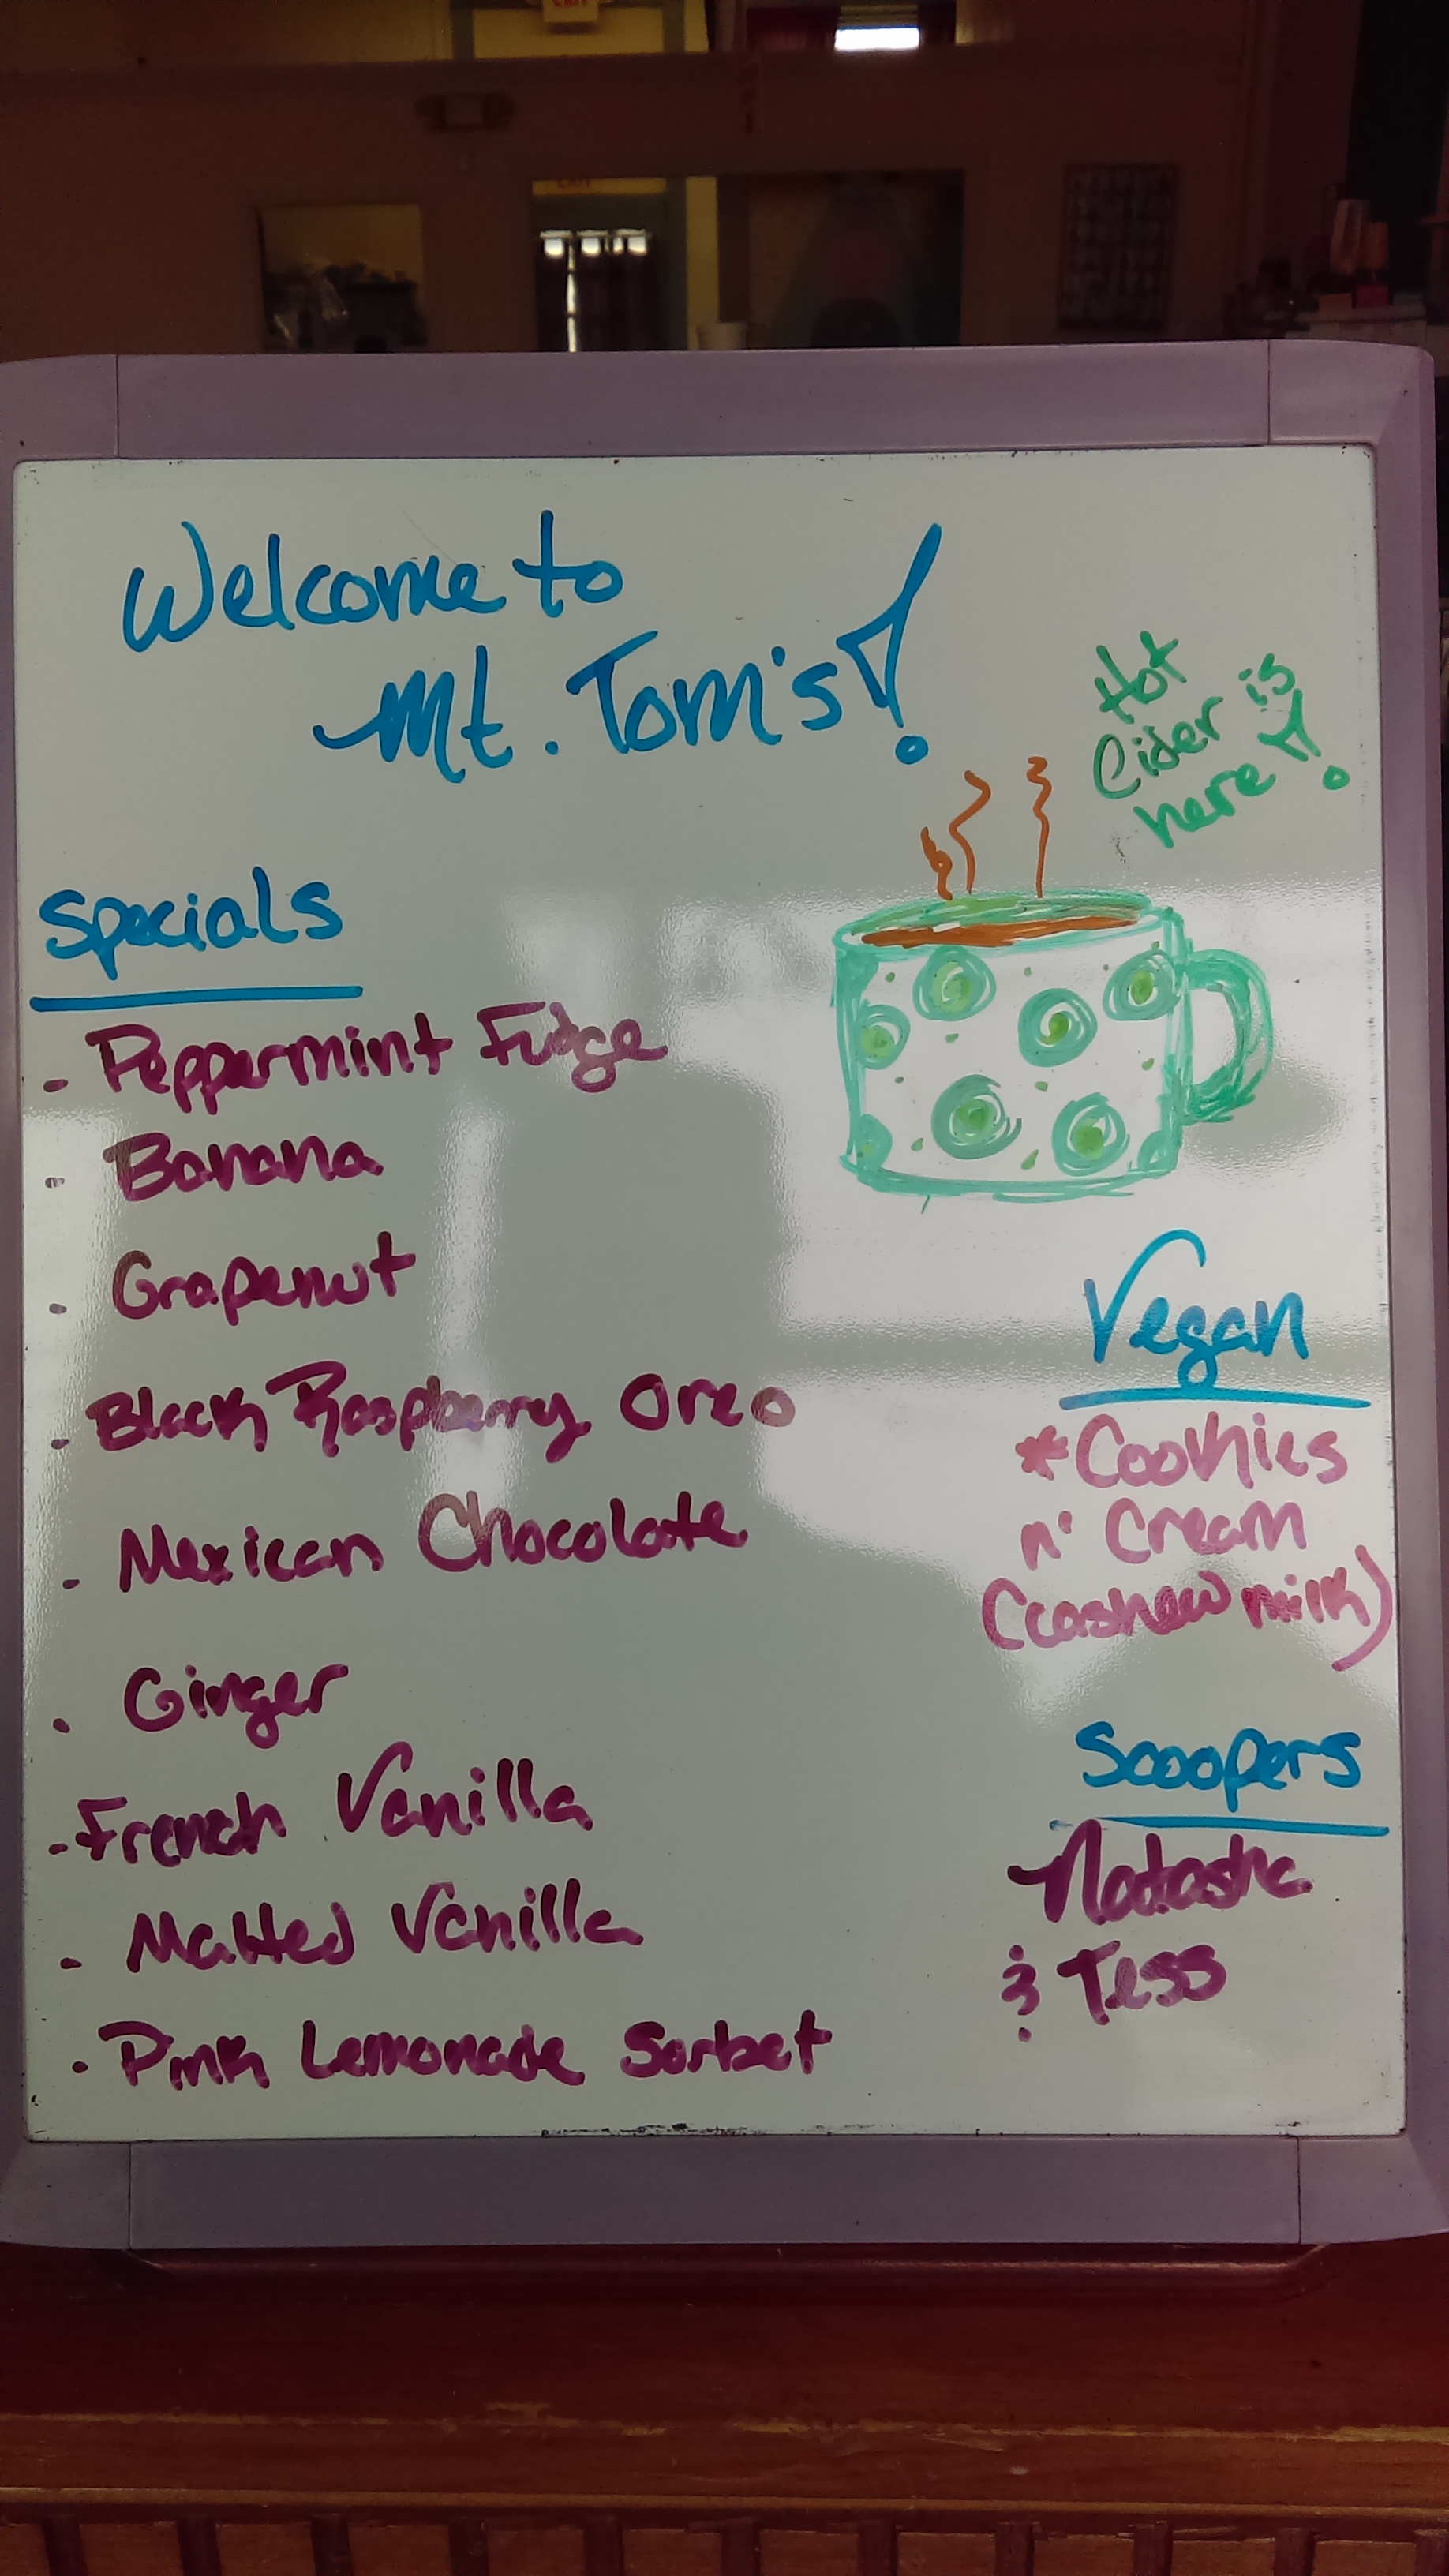 EXIT
EXIT
Welcome to
Mt. Tom's!
Hot
Cider is
here!
Specials
- Peppermint Fudge
- Banana
- Grapenut
- Black Raspberry Oreo
- Mexican Chocolate
- Ginger
- French Vanilla
- Malted Vanilla
- Pink Lemonade Sorbet
Vegan
*Cookies
n' Cream
(cashew milk)
Scoopers
Natasha
& Tess